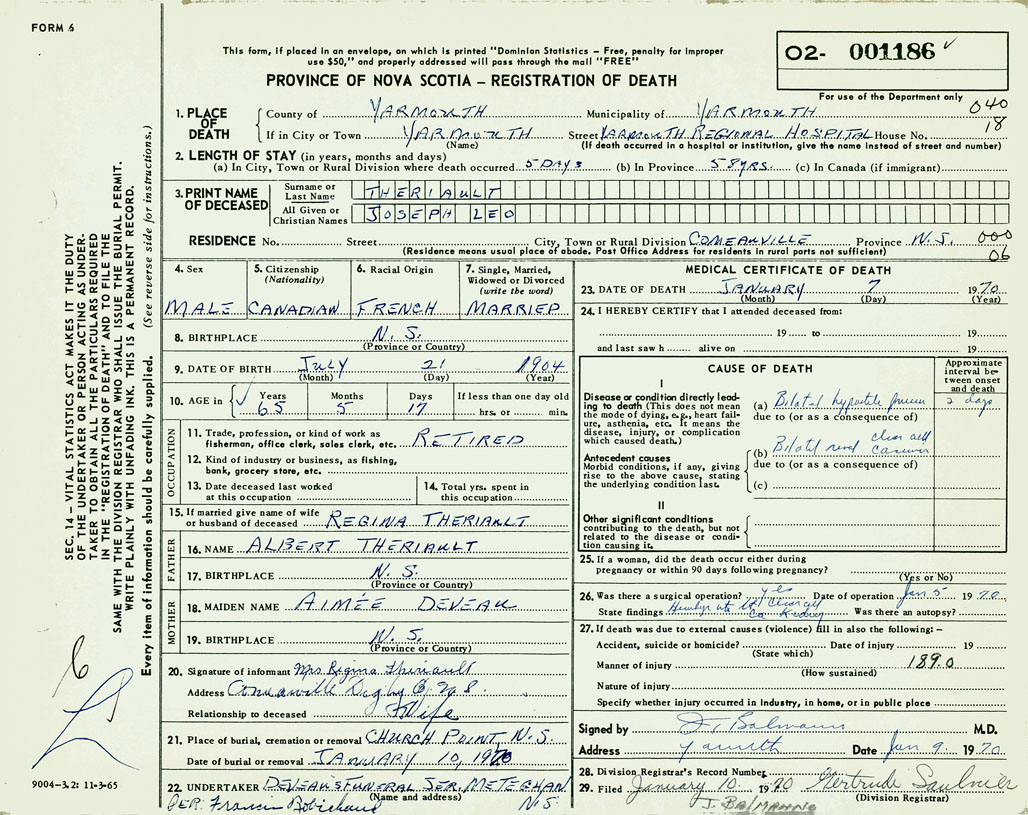 FORM 6
This form, if placed in an envelope, on which is printed "Dominion Statistics – Free, penalty for improper
use $50," and properly addressed will pass through the mail "FREE"
PROVINCE OF NOVA SCOTIA – REGISTRATION OF DEATH
02- 001186
For use of the Department only
040
18
1. PLACE OF DEATH
County of YARMOUTH Municipality of YARMOUTH
If in City or Town YARMOUTH Street YARMOUTH REGIONAL HOSPITAL House No.
(Name) (If death occurred in a hospital or institution, give the name instead of street and number)
2. LENGTH OF STAY (in years, months and days)
(a) In City, Town or Rural Division where death occurred 5 DAYS (b) In Province 58 YRS. (c) In Canada (if immigrant)
3. PRINT NAME OF DECEASED
Surname or Last Name THERIAULT
All Given or Christian Names JOSEPH LEO
RESIDENCE No. Street City, Town or Rural Division COMEAUVILLE Province N.S. 000
(Residence means usual place of abode. Post Office Address for residents in rural parts not sufficient) 06
4. Sex
MALE
5. Citizenship
(Nationality)
CANADIAN
6. Racial Origin
FRENCH
7. Single, Married,
Widowed or Divorced
(write the word)
MARRIED
8. BIRTHPLACE N.S.
(Province or Country)
9. DATE OF BIRTH July 21 1904
(Month) (Day) (Year)
10. AGE in Years Months Days If less than one day old
65 5 17 hrs. or min.
OCCUPATION
11. Trade, profession, or kind of work as
fisherman, office clerk, sales clerk, etc. RETIRED
12. Kind of industry or business, as fishing,
bank, grocery store, etc.
13. Date deceased last worked
at this occupation
14. Total yrs. spent in
this occupation
15. If married give name of wife
or husband of deceased REGINA THERIAULT
FATHER
16. NAME ALBERT THERIAULT
17. BIRTHPLACE N.S.
(Province or Country)
MOTHER
18. MAIDEN NAME AIMÉE DEVEAU
19. BIRTHPLACE N.S.
(Province or Country)
20. Signature of informant Mrs Regina Theriault
Address Comeauville Digby Co N S.
Relationship to deceased Wife
21. Place of burial, cremation or removal CHURCH POINT, N.S.
Date of burial or removal JANUARY 10, 1970
22. UNDERTAKER DEVEAU'S FUNERAL SER. METEGHAN
(Name and address) N.S.
PER. Francis Robichaud
MEDICAL CERTIFICATE OF DEATH
23. DATE OF DEATH JANUARY 7 1970
(Month) (Day) (Year)
24. I HEREBY CERTIFY that I attended deceased from:
19 to 19
and last saw h alive on 19
CAUSE OF DEATH
Approximate
interval be-
tween onset
and death
I
Disease or condition directly lead-
ing to death (This does not
mean the mode of dying, e.g., heart fail-
ure, asthenia, etc. It means the
disease, injury, or complication
which caused death.)
(a) Bilatal 2 days
due to (or as a consequence of)
Antecedent causes
Morbid conditions, if any, giving
rise to the above cause, stating
the underlying condition last.
(b) Bilatal renal clear cell
due to (or as a consequence of)
(c)
II
Other significant conditions
contributing to the death, but not
related to the disease or condi-
tion causing it.
25. If a woman, did the death occur either during
pregnancy or within 90 days following pregnancy?
(Yes or No)
26. Was there a surgical operation? yes Date of operation Jan 5 1970
State findings clear cell Ca Kidney Was there an autopsy?
27. If death was due to external causes (violence) fill in also the following: –
Accident, suicide or homicide? Date of injury 19
(State which)
Manner of injury 189.0
(How sustained)
Nature of injury
Specify whether injury occurred in industry, in home, or in public place
Signed by Balmanno M.D.
Address Yarmouth Date Jan 9 1970
28. Division Registrar's Record Number
29. Filed January 10 1970 Gertrude Saulnier
(Division Registrar)
J. BALMANNO
SEC. 14 – VITAL STATISTICS ACT MAKES IT THE DUTY
OF THE UNDERTAKER OR PERSON ACTING AS UNDER-
TAKER TO OBTAIN ALL THE PARTICULARS REQUIRED
IN THE "REGISTRATION OF DEATH" AND TO FILE THE
SAME WITH THE DIVISION REGISTRAR WHO SHALL ISSUE THE BURIAL PERMIT.
WRITE PLAINLY WITH UNFADING INK. THIS IS A PERMANENT RECORD.
Every item of information should be carefully supplied. (See reverse side for instructions.)
9004-3.2: 11-3-65